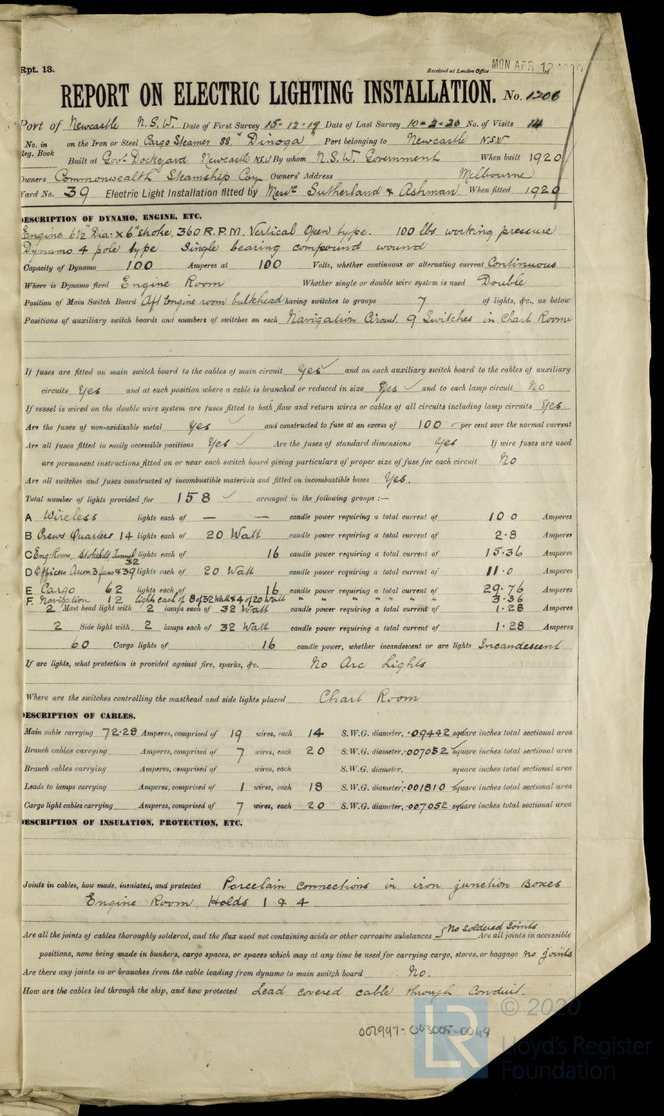 Rpt. 13.
Received at London Office MON APR 12
REPORT ON ELECTRIC LIGHTING INSTALLATION. No. 1206
Port of Newcastle N.S.W. Date of First Survey 15-12-19 Date of Last Survey 10-2-20 No. of Visits 14
No. in Reg. Book on the Iron or Steel Cargo Steamer SS. "Dinoga" Port belonging to Newcastle NSW
Built at Govt Dockyard Newcastle NSW By whom N.S.W. Government When built 1920
Owners Commonwealth Steamship Coy Owners' Address Melbourne
Yard No. 39 Electric Light Installation fitted by Messrs Sutherland & Ashman When fitted 1920
DESCRIPTION OF DYNAMO, ENGINE, ETC.
Engine 6½" Dia: x 6" stroke, 360 R.P.M. Vertical Open type. 100 lbs working pressure
Dynamo 4 pole type Single bearing compound wound
Capacity of Dynamo 100 Amperes at 100 Volts, whether continuous or alternating current Continuous
Where is Dynamo fixed Engine Room Whether single or double wire system is used Double
Position of Main Switch Board Aft Engine room bulkhead having switches to groups 7 of lights, &c., as below
Positions of auxiliary switch boards and numbers of switches on each Navigation Circuit. 9 Switches in Chart Room
If fuses are fitted on main switch board to the cables of main circuit Yes and on each auxiliary switch board to the cables of auxiliary
circuits Yes and at each position where a cable is branched or reduced in size Yes and to each lamp circuit No
If vessel is wired on the double wire system are fuses fitted to both flow and return wires or cables of all circuits including lamp circuits Yes
Are the fuses of non-oxidizable metal Yes and constructed to fuse at an excess of 100 per cent over the normal current
Are all fuses fitted in easily accessible positions Yes Are the fuses of standard dimensions Yes If wire fuses are used
are permanent instructions fitted on or near each switch board giving particulars of proper size of fuse for each circuit No
Are all switches and fuses constructed of incombustible materials and fitted on incombustible bases Yes.
Total number of lights provided for 158 arranged in the following groups :—
A Wireless lights each of — — candle power requiring a total current of 10.0 Amperes
B Crews Quarters 14 lights each of 20 Watt candle power requiring a total current of 2.8 Amperes
C Eng: Room, Stokehold Tunnel 32 lights each of 16 candle power requiring a total current of 15.36 Amperes
D Officers Accm 3 fans & 39 lights each of 20 Watt candle power requiring a total current of 11.0 Amperes
E Cargo 62 lights each of 16 candle power requiring a total current of 29.76 Amperes
F. Navigation 12 lights each of 8 of 32 Watt & 4 of 20 Watt " " " " " 3.36
2 Mast head light with 2 lamps each of 32 Watt candle power requiring a total current of 1.28 Amperes
2 Side light with 2 lamps each of 32 Watt candle power requiring a total current of 1.28 Amperes
60 Cargo lights of 16 candle power, whether incandescent or arc lights Incandescent
If arc lights, what protection is provided against fire, sparks, &c. No Arc Lights
Where are the switches controlling the masthead and side lights placed Chart Room
DESCRIPTION OF CABLES.
Main cable carrying 72.28 Amperes, comprised of 19 wires, each 14 S.W.G. diameter, .09442 square inches total sectional area
Branch cables carrying Amperes, comprised of 7 wires, each 20 S.W.G. diameter, .007052 square inches total sectional area
Branch cables carrying Amperes, comprised of wires, each S.W.G. diameter, square inches total sectional area
Leads to lamps carrying Amperes, comprised of 1 wires, each 18 S.W.G. diameter, .001810 square inches total sectional area
Cargo light cables carrying Amperes, comprised of 7 wires, each 20 S.W.G. diameter, .007052 square inches total sectional area
DESCRIPTION OF INSULATION, PROTECTION, ETC.
Joints in cables, how made, insulated, and protected Porcelain connections in iron junction Boxes
Engine Room, Holds 1 & 4
Are all the joints of cables thoroughly soldered, and the flux used not containing acids or other corrosive substances No Soldered Joints Are all joints in accessible
positions, none being made in bunkers, cargo spaces, or spaces which may at any time be used for carrying cargo, stores, or baggage no joints
Are there any joints in or branches from the cable leading from dynamo to main switch board No.
How are the cables led through the ship, and how protected Lead covered cable through Conduit.
© 2020
LR Lloyd's Register
Foundation
002997-003005-0044